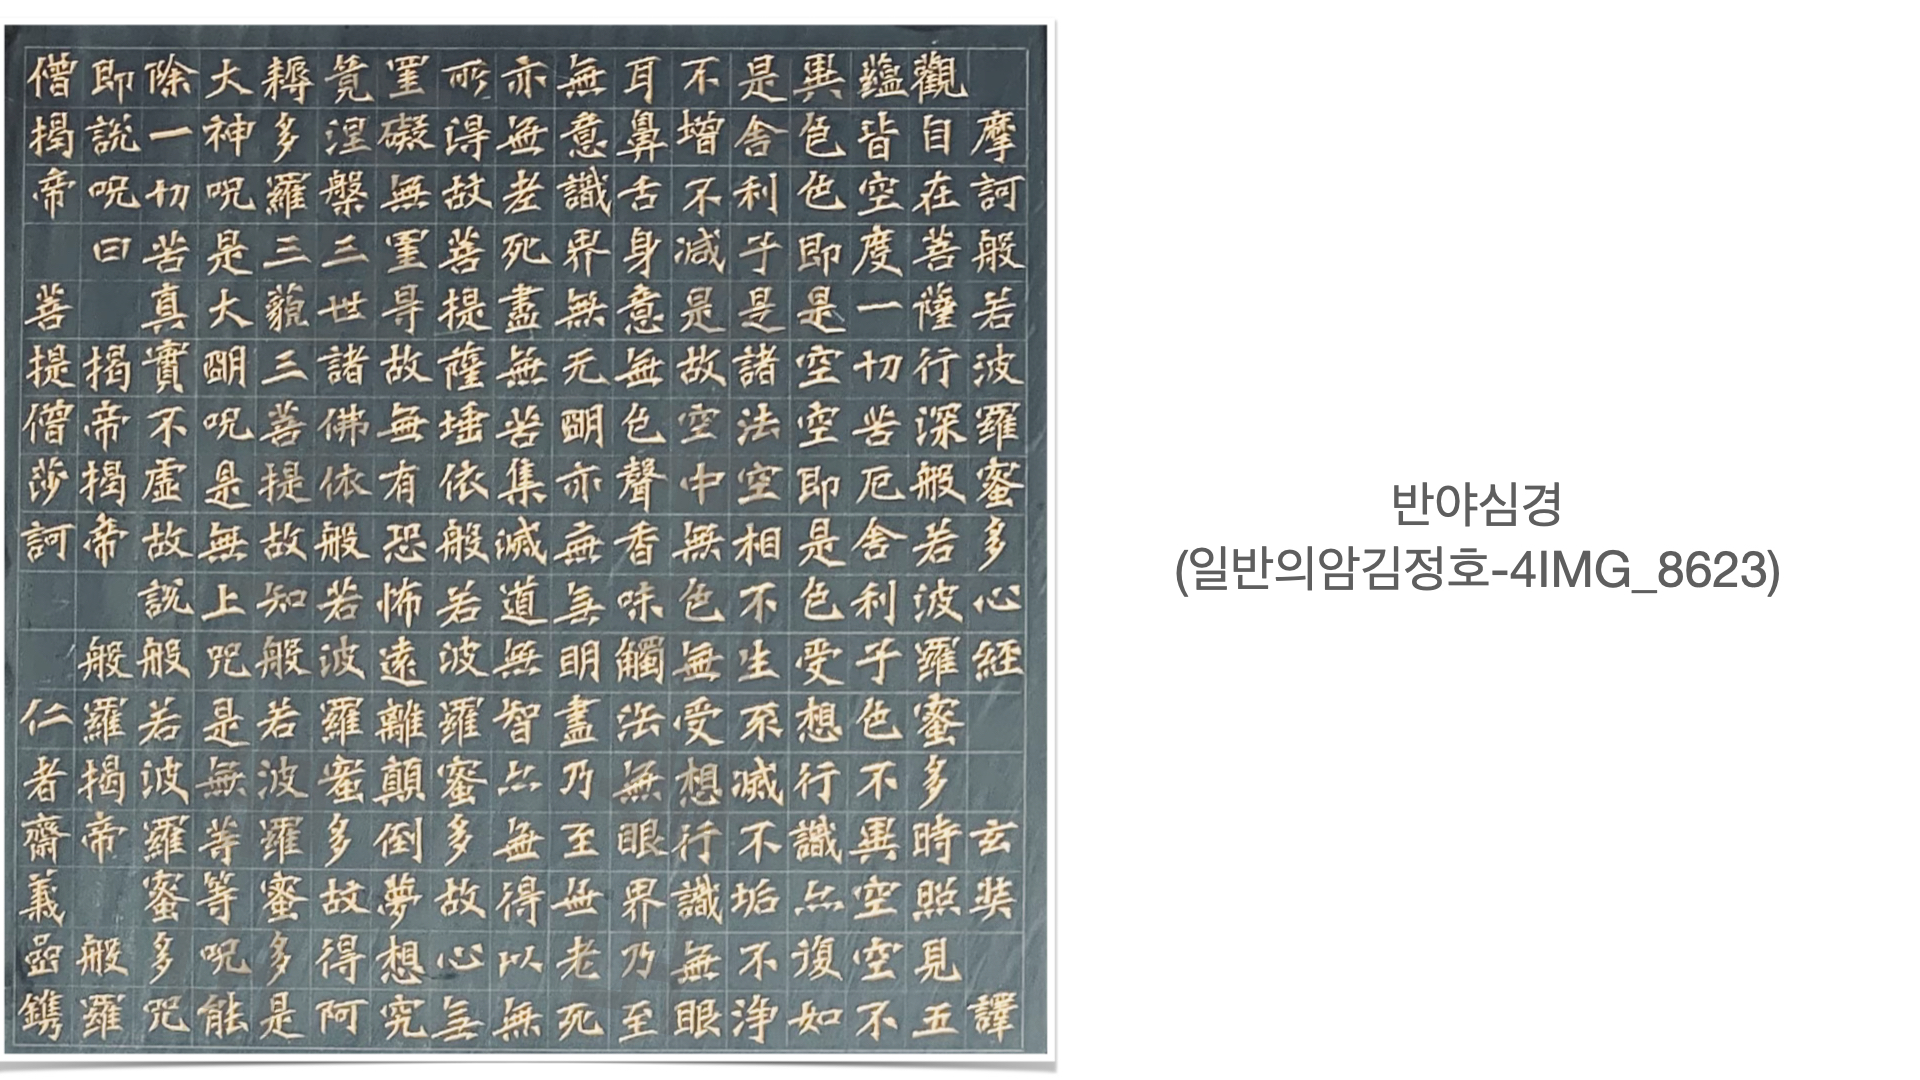 摩訶般若波羅蜜多心經 玄奘 譯
觀自在菩薩行深般若波羅蜜多時照見五
蘊皆空度一切苦厄舍利子色不異空空不
異色色即是空空即是色受想行識亦復如
是舍利子是諸法空相不生不滅不垢不淨
不增不减是故空中無色無受想行識無眼
耳鼻舌身意無色聲香味觸法無眼界乃至
無意識界無无明亦無無明盡乃至無老死
亦無老死盡無苦集滅道無智亦無得以無
所得故菩提薩埵依般若波羅蜜多故心無
罣礙無罣导故無有恐怖遠離顛倒夢想究
竟涅槃三世諸佛依般若波羅蜜多故得阿
耨多羅三藐三菩提故知般若波羅蜜多是
大神呪是大明呪是無上呪是無等等呪能
除一切苦真實不虛故說般若波羅蜜多呪
即說呪曰 揭帝揭帝 般羅揭帝 般羅
僧揭帝 菩提僧莎訶 仁者齋義嵒鐫
반야심경
(일반의암김정호-4IMG_8623)